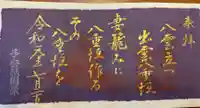 奉拝
八雲立つ
出雲八重垣
妻籠みに
八重垣作る
その
八重垣を
令和元年七月一日